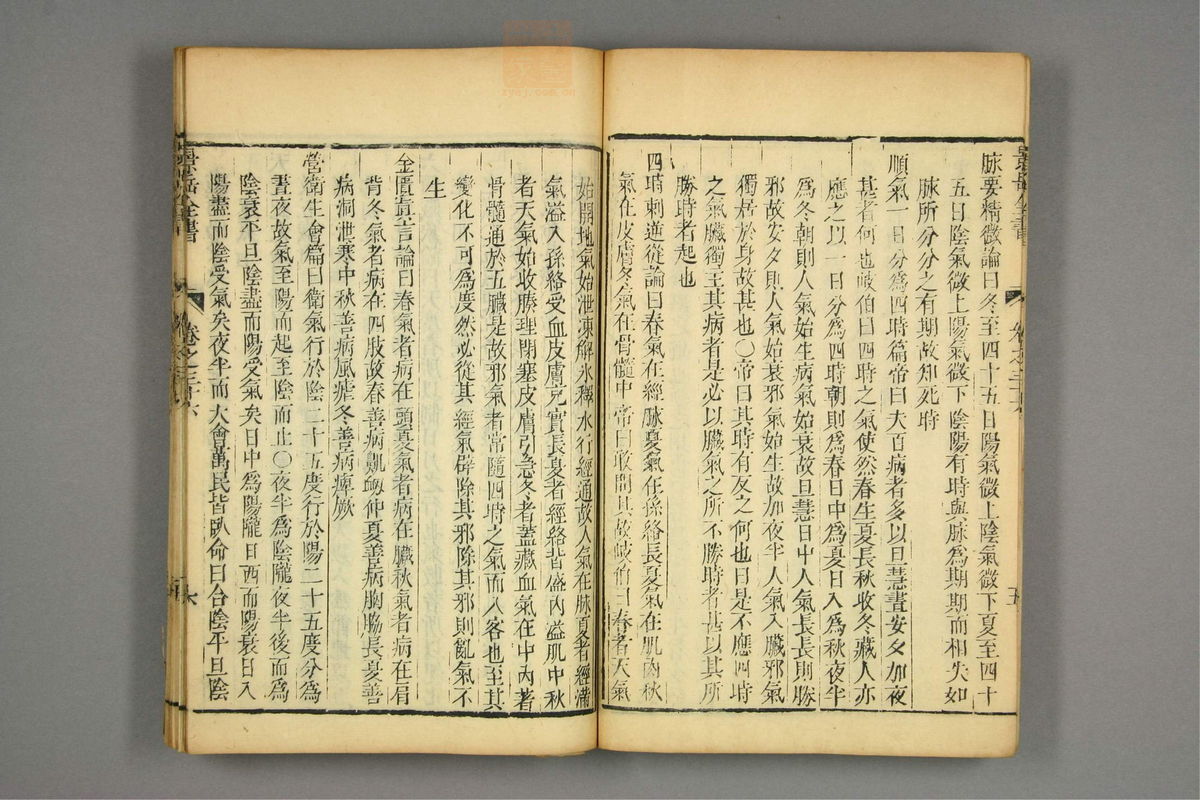 脉要精微論曰冬至四十五日陽氣微上陰氣微下夏至四十
五日陰氣微上陽氣微下陰陽有時與脉爲期期而相失如
脉所分分之有期故知死時
順氣一日分爲四時篇帝曰夫百病者多以旦慧晝安夕加夜
甚者何也岐伯曰四時之氣使然春生夏長秋收冬藏人亦
應之以一日分爲四時朝則爲春日中爲夏日入爲秋夜半
爲冬朝則人氣始生病氣始衰故旦慧日中人氣長長則勝
邪故安夕則人氣始衰邪氣始生故加夜半人氣入臟邪氣
獨居於身故甚也〇帝曰其時有反之何也曰是不應四時
之氣臟獨主其病者是必以臟氣之所不勝時者甚以其所
勝時者起也
四時刺逆從論曰春氣在經脉夏氣在孫絡長夏氣在肌肉秋
氣在皮膚冬氣在骨髓中帝曰敢問其故岐伯曰春者天氣
五
始開地氣始泄凍解氷釋水行經通故人氣在脉夏者經滿
氣溢入孫絡受血皮膚充實長夏者經絡皆盛内溢肌中秋
者天氣始收腠理閉塞皮膚引急冬者蓋藏血氣在中内著
骨髓通於五臟是故邪氣者常隨四時之氣而入客也至其
變化不可爲度然必從其經氣辟除其邪除其邪則亂氣不
生
金匱真言論曰春氣者病在頭夏氣者病在臟秋氣者病在肩
背冬氣者病在四肢故春善病鼽衂仲夏善病胸脇長夏善
病洞泄寒中秋善病風瘧冬善病痺厥
營衛生會篇曰衛氣行於陰二十五度行於陽二十五度分爲
晝夜故氣至陽而起至陰而止〇夜半爲陰隴夜半後而爲
陰衰平旦陰盡而陽受氣矣日中爲陽隴日西而陽衰日入
陽盡而陰受氣矣夜半而大會萬民皆臥命曰合陰平旦陰
景岳全書
卷之三十六
六